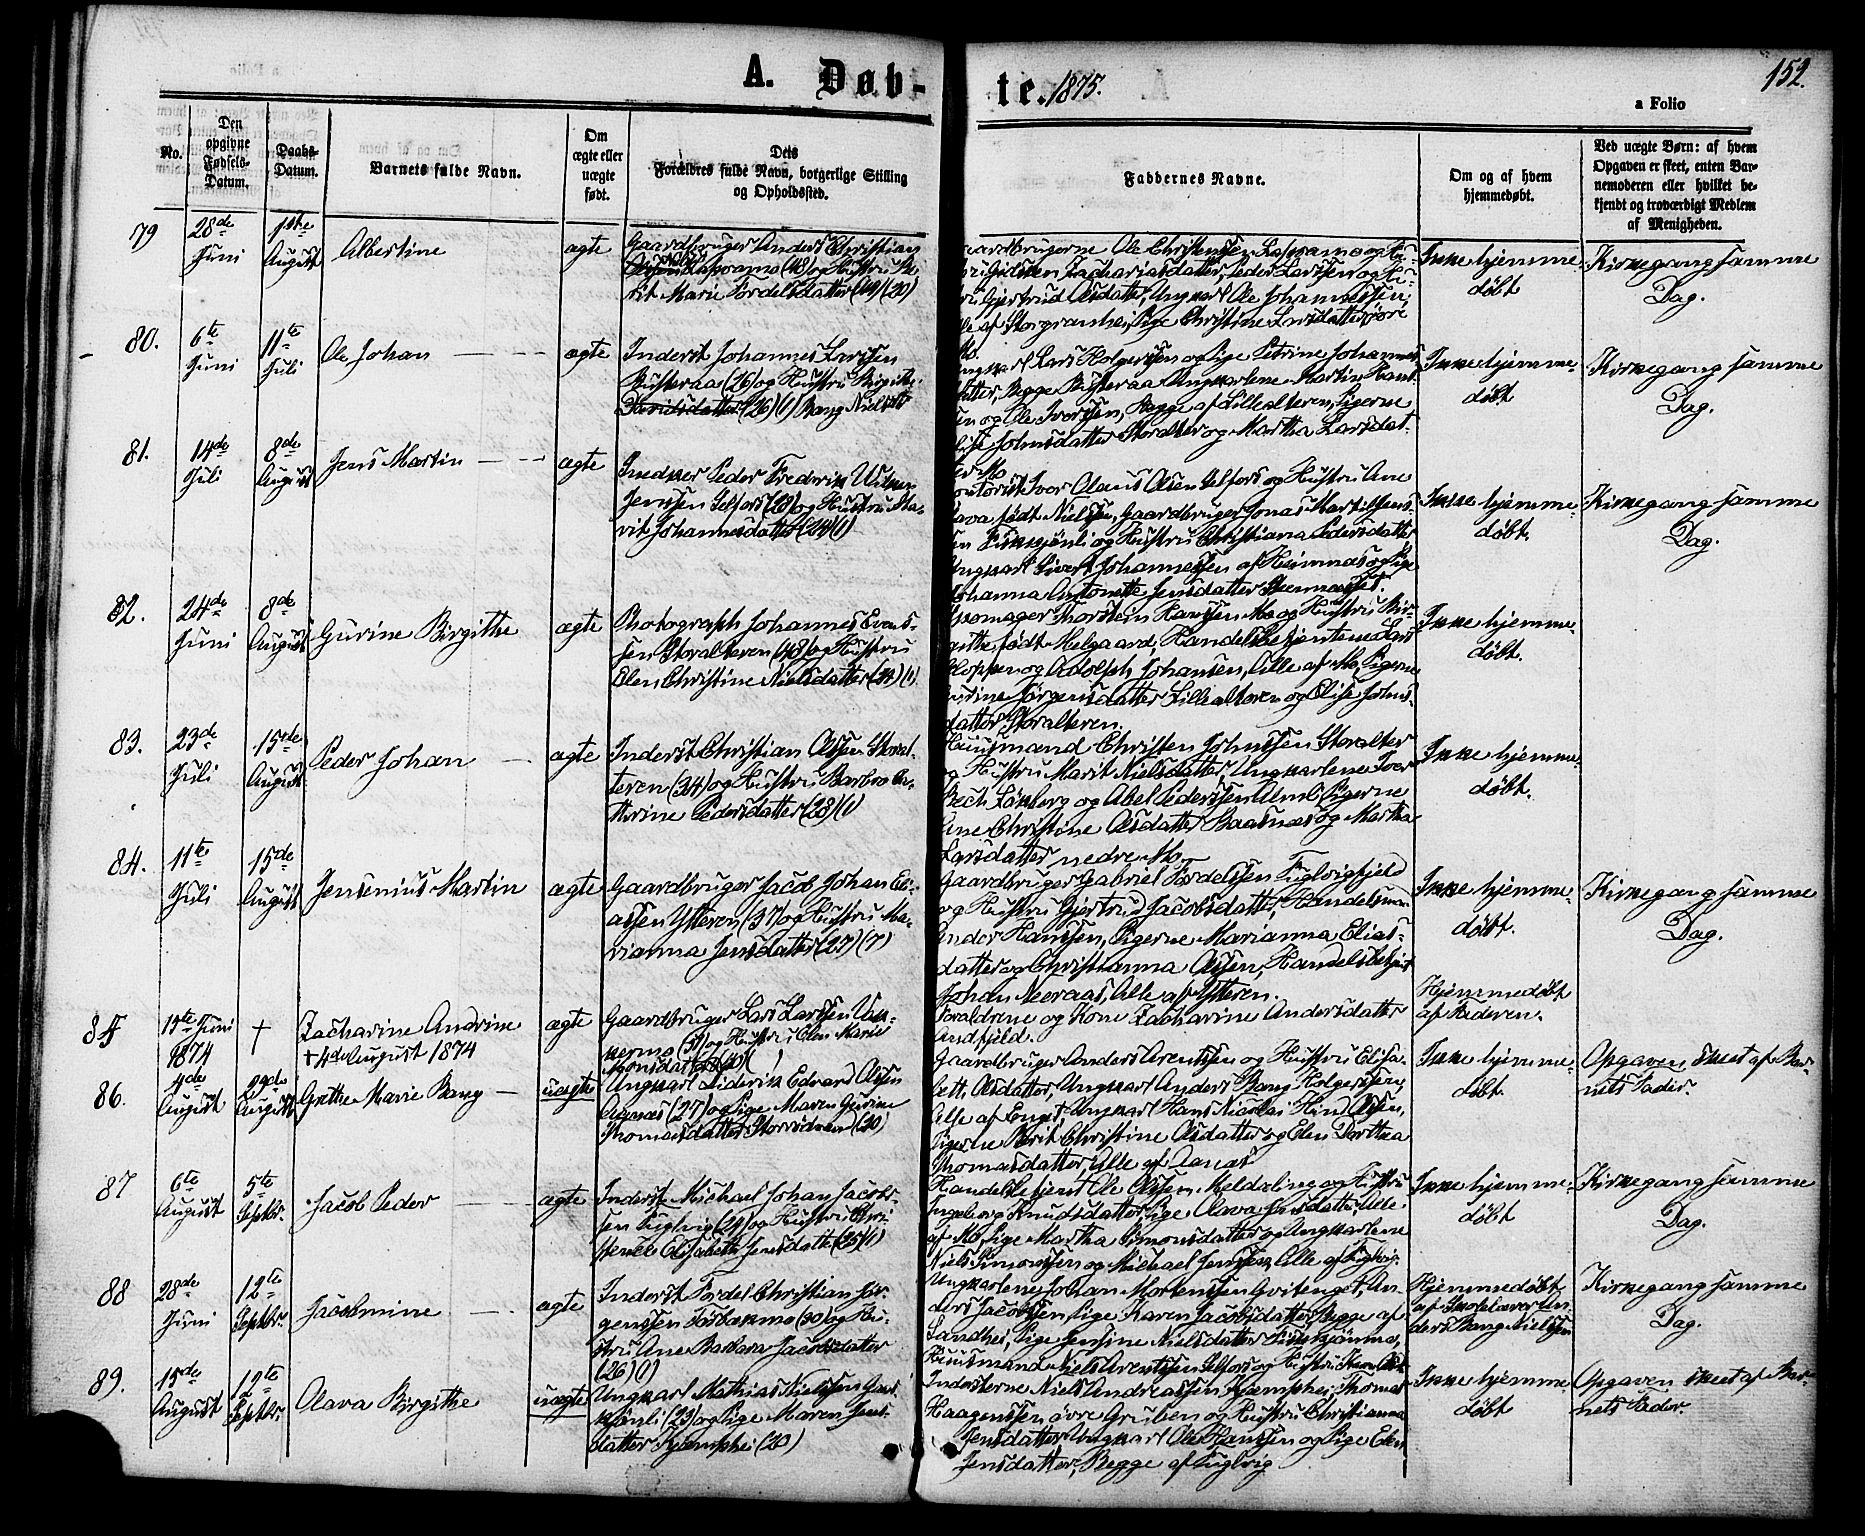 A. Døb-
te. 1875.
152.
a Folio
No.
Den
opgivne
Fødsels-
Datum.
Daabs-
Datum.
Barnets fulde Navn.
Om
ægte eller
uægte
født.
Dets
Forældres fulde Navn, borgerlige Stilling
og Opholdssted.
Faddernes Navne.
Om og af hvem
hjemmedøbt.
Ved uægte Børn: af hvem
Opgaven er skeet, enten Bar-
nemoderen eller hvilket be-
kjendt og troværdigt Medlem
af Menigheden.
79
28de
Juni
1ste
August
Albertine
ægte
Gaardbruger Anders Christian
(48) og Hustru Be-
rit Marie Tordelsdatter (44) (20)
Gaardbrugerne Ole Christensen og Hu-
Zachariasdatter, Peder Larssen og Hu-
stru Gjertrud Olsdatter, Ungkarl Ole Johannessen,
Alle af Storgranhei, Pige Christine Larsdatter øvre
Mo.
Ikke hjemme-
døbt
Kirkegang samme
Dag.
80.
6te
Juni
11te
Juli
Ole Johan
ægte
Inderst Johannes Larssen
Busteraa (26) og Hustru Birgithe
(26) (1) Bang Nielsdtr
Ungkarl Lars Holgersen og Pige Petrine Johannes-
datter, Begge Busteraa, Ungkarlene Martin Hans-
sen og Ole Iversen, Begge af Lillealteren, Pigerne
Elise Johnsdatter Storalter og Martha Larsdat-
ter Mo
Ikke hjemme-
døbt
Kirkegang samme
Dag.
81.
14de
Juli
8de
August
Jens Martin
ægte
Snedker Peder Frederik
Jenssen Selfors (28) og Hustru Ma-
rit Johannesdatter (24) (1)
Kontorist Iver Olaus Olsen Selfors og Hustru Ane
født Nielsen, Gaardbruger Jonas
sen og Hustru Christiana Pedersdatter
Ungkarl Sivert Johannessen af Heimnæs og Pige
Johanna Antonette Jensdatter Steennæsset.
Ikke hjemme-
døbt.
Kirkegang samme
Dag.
82.
24de
Juni
8de
August
Gurine Birgithe
ægte
Photograph Johannes Evens-
sen Storalteren (48) og Hustru
Elen Christine Nielsdatter (34) (1)
Skomager Thorstein Hanssen Mo og Hustru Bir-
githe, født Melgaard, Handelsbetjentene Lars
Kloppen og Adolph Johansen, Alle af Mo, Pigerne
Gurine Jørgensdatter Lillealteren og Elise Johns-
datter Storalteren.
Ikke hjemme-
døbt.
83.
23de
Juli
15de
August
Peder Johan
ægte
Inderst Christian Olsen Storal-
teren (34) og Hustru Barbro Ca-
thrine Pedersdatter (28) (1)
Huusmand Christen Johnssen Storalter
og Hustru Marit Nielsdatter, Ungkarlene Iver
Bech Lønborg og Abel Pederssen Almli, Pigerne
Ane Christine Olsdatter Gaasnæs og Martha
Larsdatter nedre Mo.
Ikke hjemme-
døbt.
84.
11te
Juli
15de
August
Jensenius Martin
ægte
Gaardbruger Jacob Johan Eli-
assen Ytteren (37) og Hustru Ma-
rianna Jensdatter (27) (7)
Gaardbruger Gabriel Tordelssen Fuglvigfjeld
og Hustru Gjertrud Jacobsdatter, Handelsmand
Anders Hanssen, Pigerne Marianna Elias-
datter og Christianna Olssen, Handelsbetjent
Johan Neeraas, Alle af Ytteren.
Ikke hjemme-
døbt.
Kirkegang samme
Dag.
85
Juni
1874
†
Zacharine Andrine
† 4de August 1874
ægte
Gaardbruger Lars Larssen
og Hustru Elen Marie
Forældrene og Kone Zacharine Andersdatter
Andfjeld.
Hjemmedøbt
af Faderen.
86.
4de
August
29de
August
Grethe Marie Bang
uægte
Ungkarl Diderik Edvard Olsen
Aanæs (27) og Pige Maren Gurine
Thomasdatter (20)
Gaardbruger Anders Arentsen og Hustru Elisa-
beth Olsdatter, Ungkarl Anders Bang Holgersen,
Alle af Enge, Ungkarl Hans Nicolai Hind Olsen,
Pigerne Berit Christine Olsdatter og Elen Dorthea
Thomasdatter, Alle af Aanæs
Ikke hjemme-
døbt.
Opgaven skeet af Bar-
nets Fader.
87
6te
August
5te
Septbr.
Jacob Peder
ægte
Inderst Michael Johan Jacob-
sen Fuglvig (24) og Hustru
Elisabeth Jensdatter (25) (1)
Handelsbetjent Ole Olssen og Hustru
Ingeborg Knudsdatter, Pige Olava Larsdatter, Alle
af Mo, Pige Martha Simonsdatter og Ungkarlene
Niels Simonssen og Michael Jenssen, Alle af Fuglvig.
Ikke hjemme-
døbt
Kirkegang samme
Dag.
88
28de
Juni
12te
Septbr.
Jacobmine
ægte
Inderst Tordel Christian Jør-
genssen (30) og Hu-
stru Ane Barbara Jacobsdatter
(26) (1)
Ungkarlene Johan Mortenssen Hvitenget, An-
ders Jacobsen, Pige Karen Jacobsdatter, Begge af
Sandhei, Pige Jensine Nielsdatter
Huusmand Niels Arentsen Selfors og Hustru
Hjemmedøbt
af Skolelærer An-
ders Bang Nielssen
Kirkegang samme
Dag.
89.
15de
August
12te
Septbr.
Olava Birgithe
uægte
Ungkarl Mathias Nielssen
(23) og Pige Maren Jens-
datter Kjæmphei (20)
Inderterne Niels Andreassen Kjæmphei, Thomas
Haagenssen øvre Gruben og Hustru Christianna
Jensdatter, Ungkarl Ole Hanssen og Pige Elen
Jensdatter, Begge af Fuglvig
Ikke hjemme-
døbt
Opgaven skeet af Bar-
nets Fader.